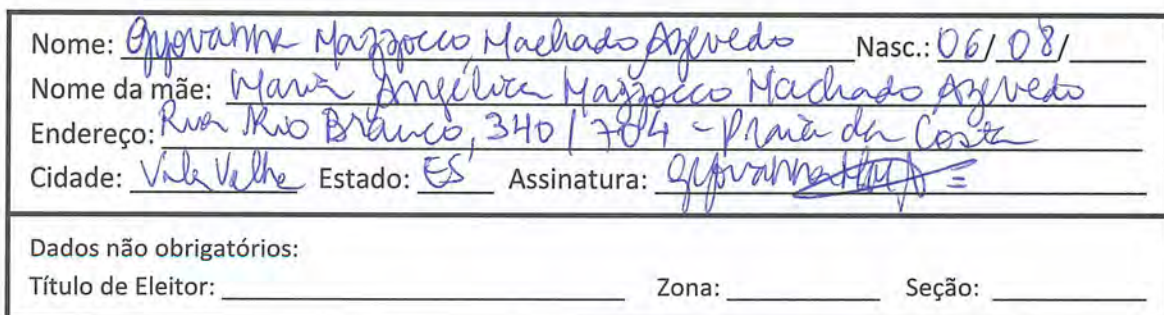 Nome: Gyovanna Mazzocco Machado Azevedo Nasc.: 06/ 08/
Nome da mãe: Maria Angélica Mazzocco Machado Azevedo
Endereço: Rua Rio Branco, 340 / 704 - Praia da Costa
Cidade: Vila Velha Estado: ES Assinatura: Gyovanna
Dados não obrigatórios:
Título de Eleitor: Zona: Seção: